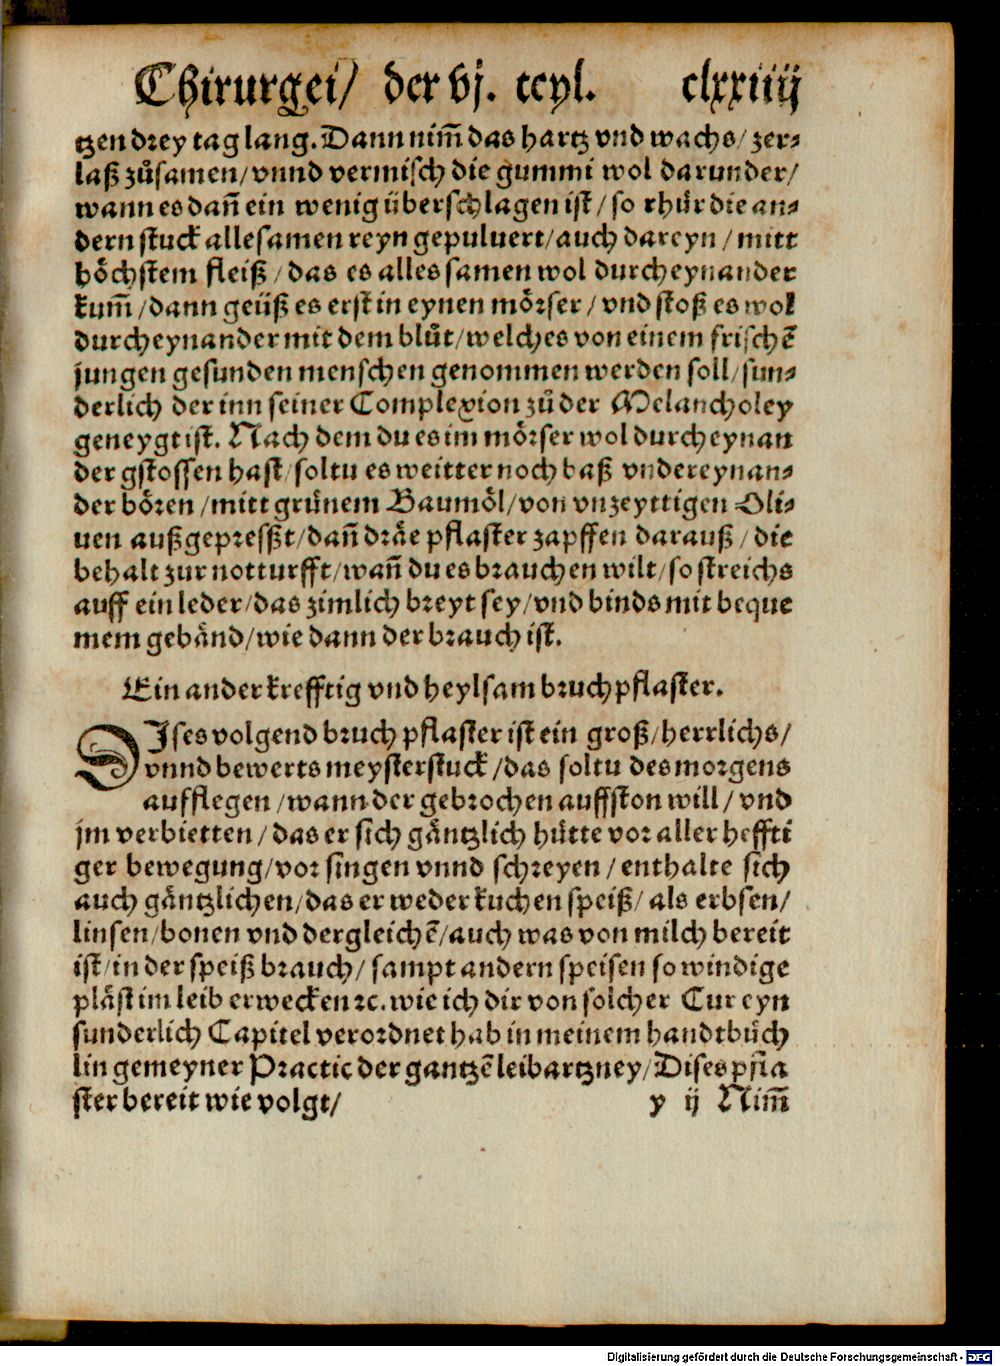 Chirurgei/ der vj. teyl. clxxiiij
tzen drey tag lang. Dann nim̄ das hartz vnd wachs/ zer⸗
laß zůsamen/ vnnd vermisch die gummi wol darunder/
wann es dañ ein wenig überschlagen ist/ so rhůr die an⸗
dern stuck allesamen reyn gepuluert/ auch dareyn/ mitt
höchstem fleiß/ das es alles samen wol durcheynander
kum̄/ dann geüß es erst in eynen mörser/ vnd stoß es wol
durcheynander mit dem blůt/ welches von einem frischē
jungen gesunden menschen genommen werden soll/ sun⸗
derlich der inn seiner Complexion zů der Melancholey
geneygt ist. Nach dem du es im mörser wol durcheynan
der gstossen hast/ soltu es weitter noch baß vndereynan⸗
der bören/ mitt grůnem Baumöl/ von vnzeyttigen Oli⸗
uen außgepresßt/ dañ dräe pflaster zapffen darauß/ die
behalt zur notturfft/ wañ du es brauchen wilt/ so streichs
auff ein leder/ das zimlich breyt sey/ vnd binds mit beque
mem gebänd/ wie dann der brauch ist.
Ein ander krefftig vnd heylsam bruchpflaster.
DIses volgend bruch pflaster ist ein groß/ herrlichs/
vnnd bewerts meysterstuck/ das soltu des morgens
aufflegen/ wann der gebrochen auffston will/ vnd
jm verbietten/ das er sich gäntzlich hůtte vor aller heffti
ger bewegung/ vor singen vnnd schreyen/ enthalte sich
auch gäntzlichen/ das er weder kuchen speiß/ als erbsen/
linsen/ bonen vnd dergleichē/ auch was von milch bereit
ist/ in der speiß brauch/ sampt andern speisen so windige
pläst im leib erwecken ꝛc. wie ich dir von solcher Cur eyn
sunderlich Capitel verordnet hab in meinem handtbůch
lin gemeyner Practic der gantzē leibartzney/ Dises pfla
ster bereit wie volgt/ y ij Nim̄
Digitalisierung gefördert durch die Deutsche Forschungsgemeinschaft - DFG